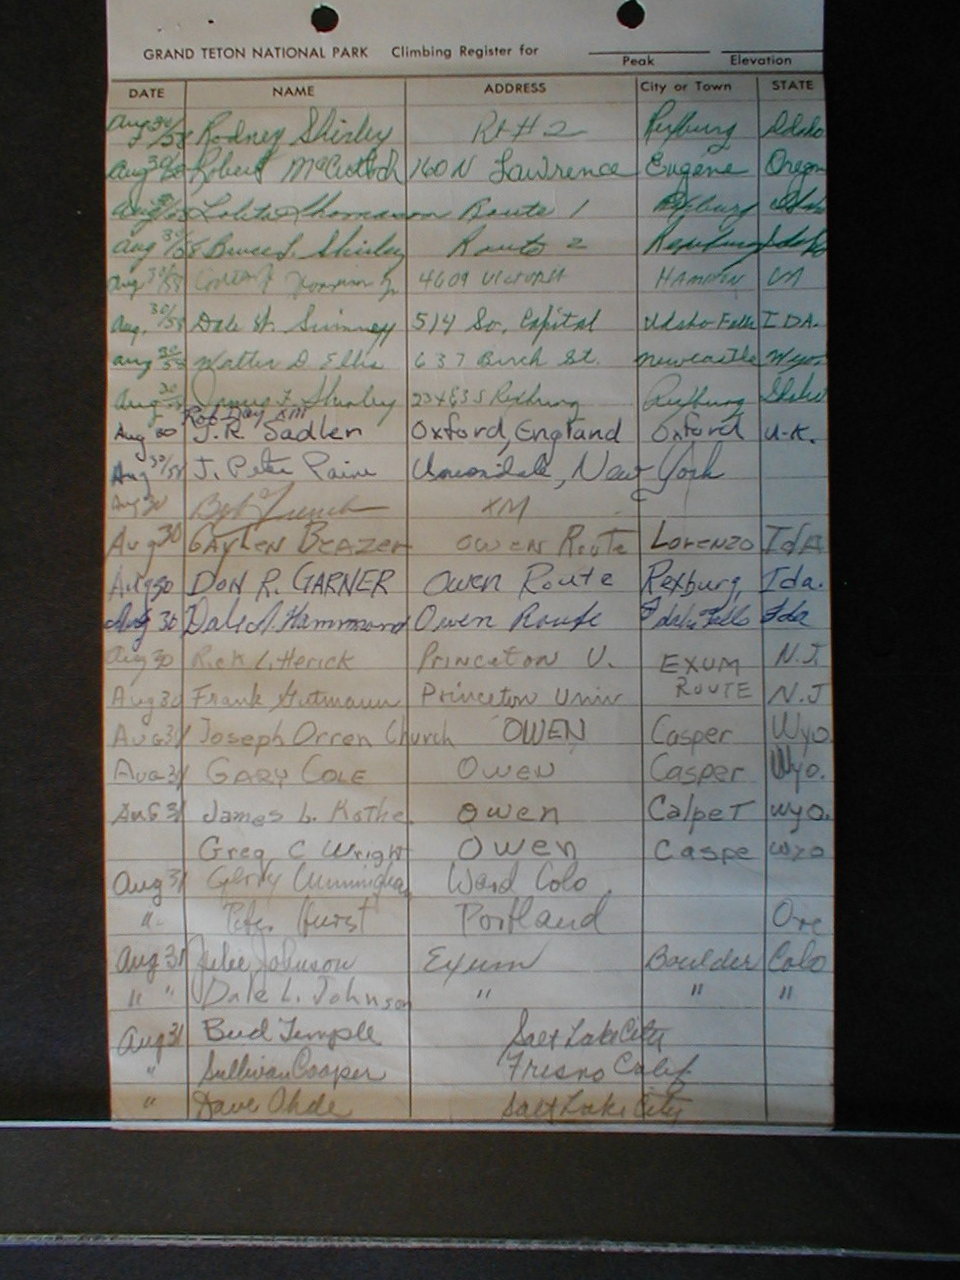 GRAND TETON NATIONAL PARK Climbing Register for
Peak Elevation
DATE NAME ADDRESS City or Town STATE
Aug 30/58 Rodney Shirley Rt # 2 Rexburg Idaho
Aug 30/58 Robert 160 N Lawrence Eugene Oregon
Aug 30/58 Route 1 Rexburg Idaho
Aug 30/58 Bruce L. Shirley Route 2 Rexburg Idaho
Aug 30/58 4609 Victoria HAMPTON VA
Aug. 30/58 Dale W. 514 So. Capital Idaho Falls IDA.
Aug 30/58 Walter D. Ellis 637 Birch St. Newcastle Wyo.
Aug 30/58 James F. Shirley Rexburg Rexburg Idaho
Rob Day XM
Aug 30 J.R. Sadler Oxford, England Oxford U.K.
Aug 30/58 J. Peter Paine Uniondale, New York
Aug 30 Bob French XM
Aug 30 GAYLEN BEAZER OWEN Route LORENZO IdA
Aug 30 DON R. GARNER Owen Route Rexburg, Ida.
Aug 30 Dale A. Hammond Owen Route Idaho Falls Ida
Aug 30 Rick L. Herick Princeton U. EXUM N.J.
Aug 30 Frank Gutmann Princeton Univ ROUTE N.J
Aug 31 Joseph Orren Church OWEN Casper Wyo.
Aug 31 GARY COLE OWEN Casper Wyo.
AuG 31 James L. Kothe Owen CalpeT wyo.
Greg C Wright Owen Caspe wyo
Aug 31 Gerry Cunningham Ward Colo
" Pete Hurst Portland Ore
Aug 31 Julie Johnson Exum Boulder Colo
" " Dale L. Johnson " " "
Aug 31 Bud Temple Salt Lake City
" Sullivan Cooper Fresno Calif
" Dave Ohde Salt Lake City